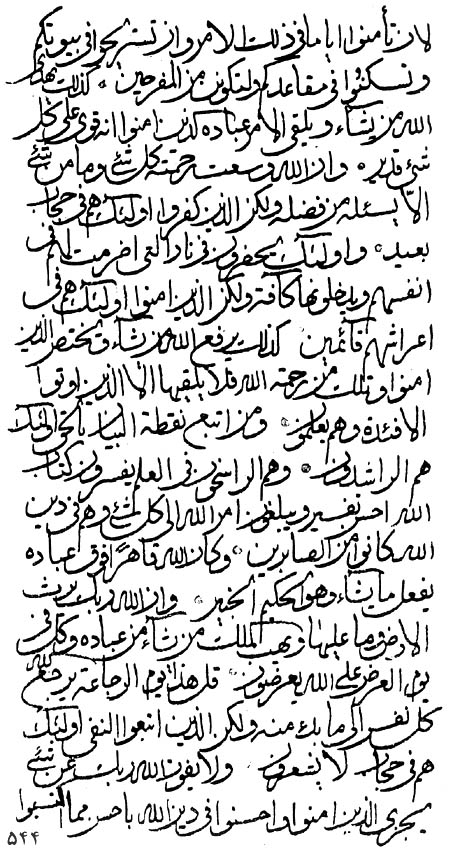 لان تأمنوا اياما في ذلك الامر وان تستريحوا في بيوتكم
وتسكنوا في مقاعدكم ولتكونن من المفرحين كذلك يهدي
الله من يشاء ويلقي الامر من عباده الذين امنوا انه قوي على كل
شيء قدير وان الله وسعت رحمته كل شيء وما من شيء
الا يسئله من فضله ولكن الذين كفروا اولئك هم في حجاب
بعيد واولئك يحضرون في نار التي اضرمت لهم في
انفسهم ويدخلونها كافة ولكن الذين امنوا اولئك هم في
اعراشهم قائمين كذلك يرفع الله من يشاء ويختص الذين
امنوا وتلك من رحمة الله فلا يلقيها الا الذين اوتوا
الافئدة وهم يعلمون ومن اتبع نقطة البيان بالحق اولئك
هم الراشدون وهم الراسخون في العلم يفسرون كتاب
الله احسن تفسير ويبلغون امر الله الى كل شيء وهم في دين
الله كانوا من الصابرين وكان الله قاهرا فوق عباده
يفعل ما يشاء وهو الحكيم الخبير وان الله ربك يرث
الارض وما عليها ويهب الملك من يشاء من عباده وكل في
يوم العرض على الله يعرضون قل هذا يوم الرجاعة يرجع الله
كل نفس الى ما بدء منه ولكن الذين اتبعوا النفي اولئك
هم في حجاب لا يشعرون ولا يفوت الله ربك عن شيء
يجزي الذين امنوا واحسنوا في دين الله باحسن مما اكتسبوا
۵۴۴